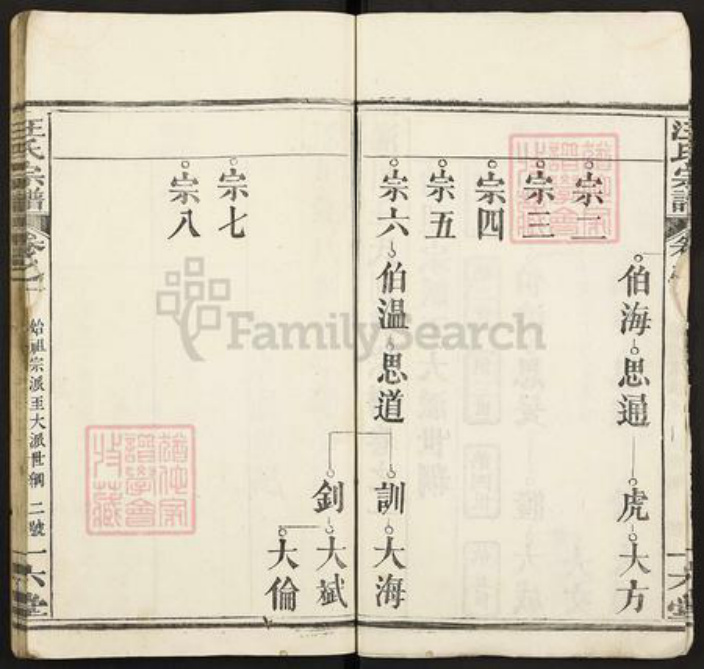 汪氏宗譜
伯海 思通 虎 大方
宗二
宗三
宗四
宗五
宗六 伯温 思道 訓 大海
釗 大斌
大倫
宗七
宗八
汪氏宗譜
始祖宗派至大派世綱 二號
六堂
FamilySearch